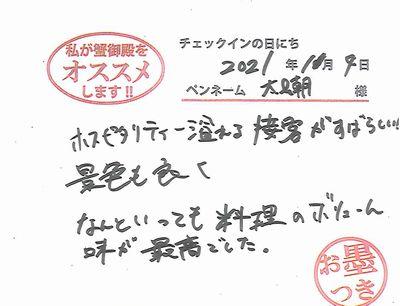 私が蟹御殿を
オススメ
します!!
チェックインの日にち
2021年10月9日
ペンネーム 大潮 様
ホスピタリティー溢れる接客がすばらしい!!
景色も良く
なんといっても料理のボリューム
味が最高でした。
お墨
つき